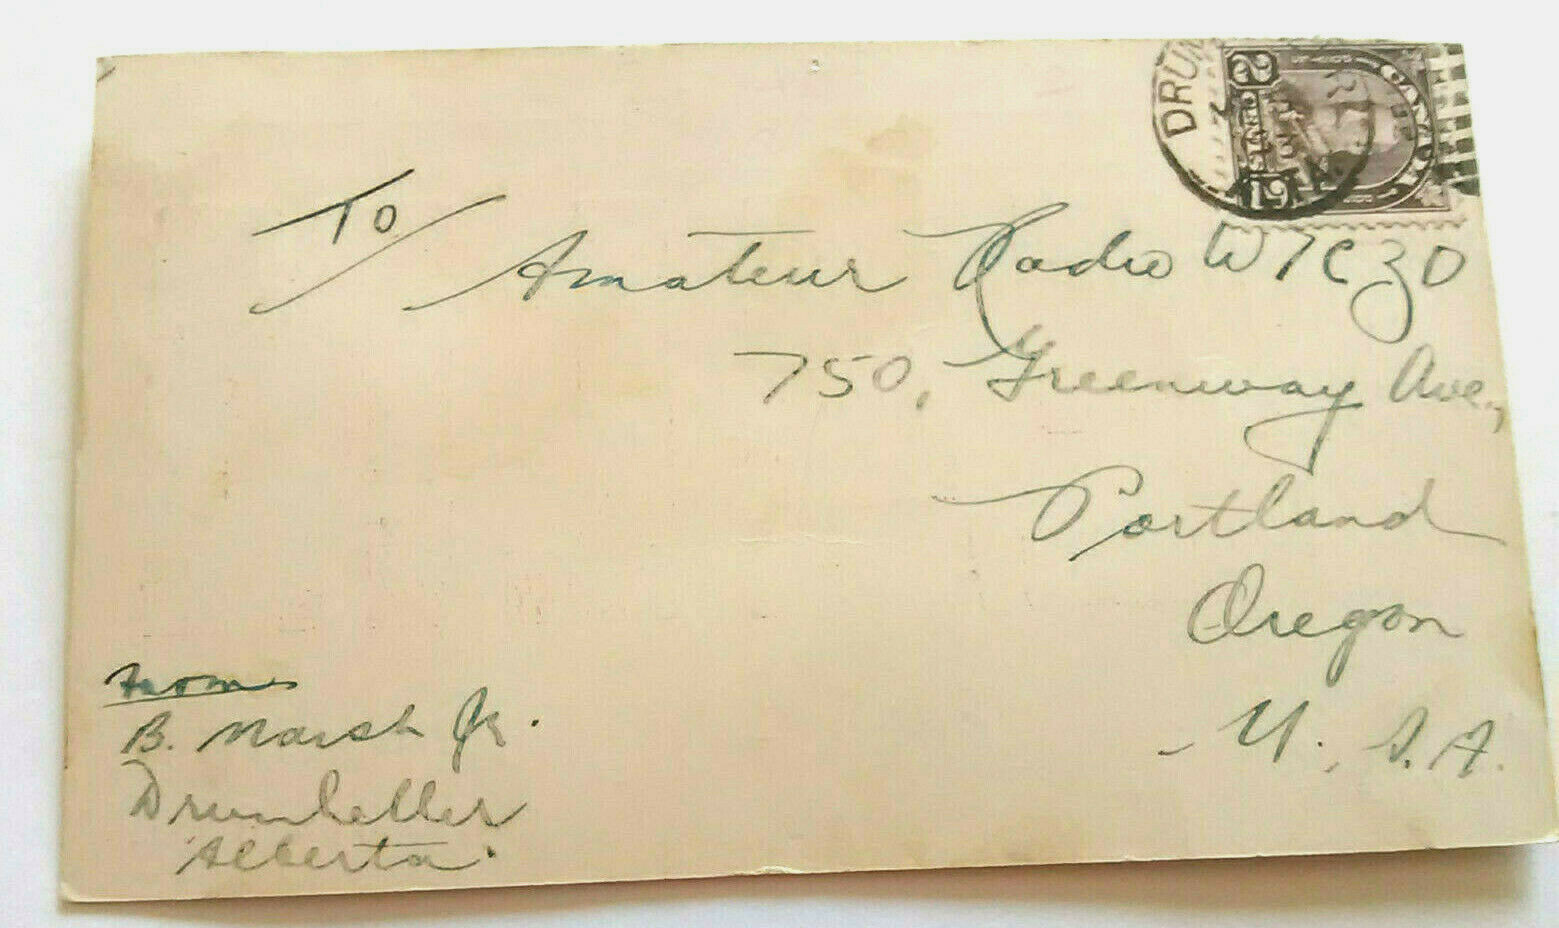 To
Amateur Radio W7CZO
750, Greenway Ave.,
Portland
Oregon
U.S.A.
From
B. Marsh Jr.
Drumheller
Alberta.
DRUM
CANADA
2
CENTS